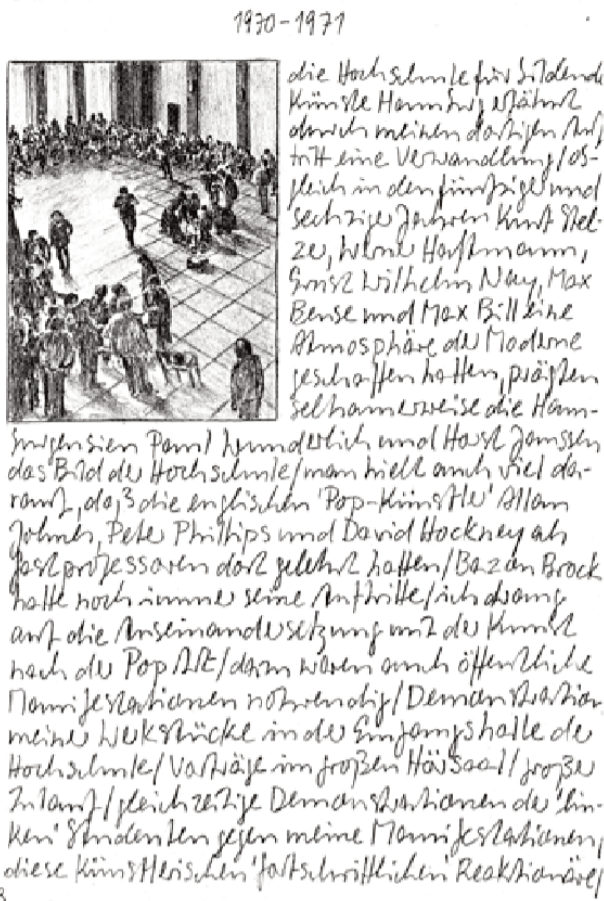 1970-1971
die Hochschule für bildende
Künste Hamburg erfährt
durch meinen dortigen Auf
tritt eine Verwandlung/ob-
gleich in den fünfziger und
sechziger Jahren Kurt Stel-
ze, Werner Haftmann,
Ernst Wilhelm Nay, Max
Bense und Max Bill eine
Atmosphäre der Moderne
geschaffen hatten, prägten
seltsamerweise die Ham-
burgensien Paul Wunderlich und Horst Janssen
das Bild der Hochschule/man hielt auch viel da-
rauf, daß die englischen 'Pop-Künstler' Allan
Johnes, Peter Phillips und David Hockney als
Gastprofessoren dort gelehrt hatten/Bazon Brock
hatte noch immer seine Auftritte/ich drang
auf die Auseinandersetzung mit der Kunst
nach der Pop Art/dazu waren auch öffentliche
Manifestationen notwendig/Demonstration
meiner Werkstücke in der Eingangshalle der
Hochschule/Vorträge im großen Hörsaal/großer
Zulauf/gleichzeitige Demonstrationen der 'lin-
ken' Studenten gegen meine Manifestationen,
diese künstlerischen 'fortschrittlichen' Reaktionäre/